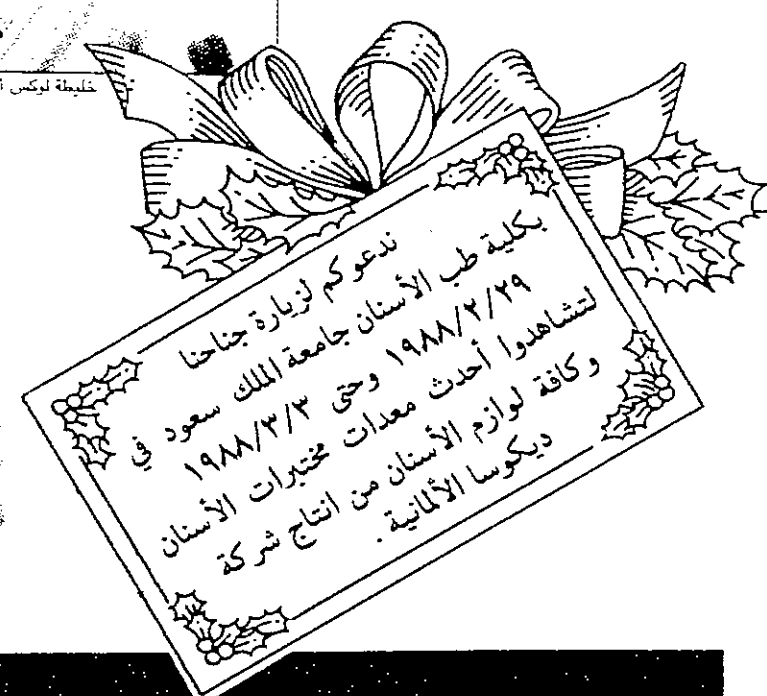 خليطة لوكس
ندعوكم لزيارة جناحنا
بكلية طب الأسنان جامعة الملك سعود في
١٩٨٨/٢/٢٩ وحتى ١٩٨٨/٣/٣
لتشاهدوا أحدث معدات مختبرات الأسنان
وكافة لوازم الأسنان من انتاج شركة
ديكوسا الألمانية .